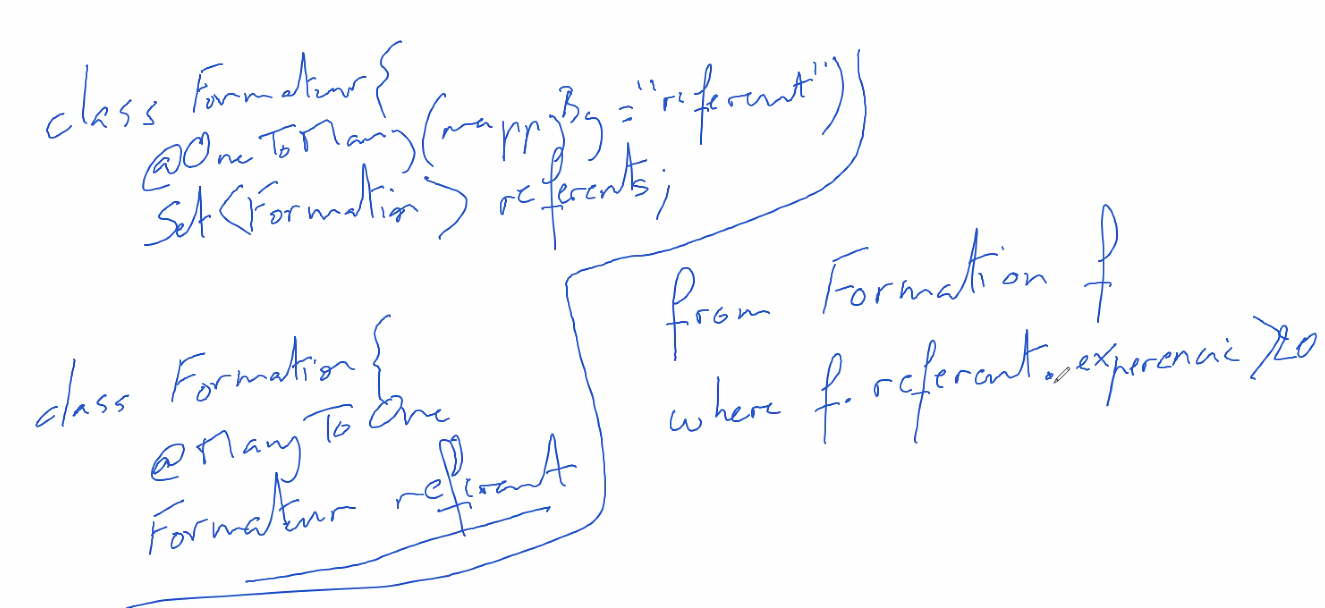 class Formateur {
@OneToMany(mappyBy="referent")
Set<Formation> referents;
class Formation {
@ManyToOne
Formateur referent
from Formation f
where f.referent.experencie >20